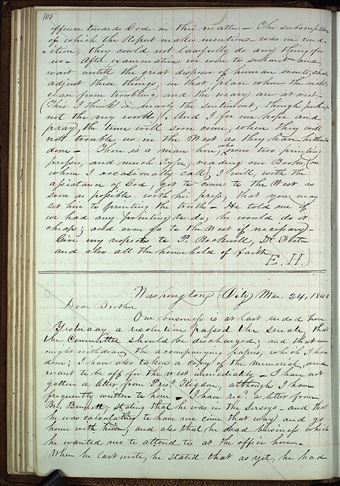 105
offence towards God in this matter - The subscription
of which the Report makes mention was in
they could not lawfully do any thing for
us - After examination we were to submit and
wait until the great disposer of human events shall
adjust these things, in that place where the wicked
cease from troubling and the weary are at rest
(This I think is nearly the sentiment, though perhaps
not the very words) And I for one hope and
pray, the time will soon come, when they will
not trouble us in the West as they have hitherto
done - There is a man here who owns two printing
presses, and much type, reading our Books, (on
whom I occasionally call) I will, with the
assistance of God, get to come to the West as
soon as possible with his press, that you may
set him to printing the truth - He told me if
we had any printing to do, he would do it
cheap; and even go to the West if necessary -
Give my respects to P. Rockwell, Dr
and also all the household of faith
E. H.)
Washington (City) Mar. 24, 1840
Dear Brother
Our business is at last ended here
Yesterday a resolution passed the Senate, that
the Committee should be discharged; and that we
might withdraw the accompanying papers, which I have
done; I have also taken a copy of the Memorial, and
want to be off for the West immediately - I have not
gotten a letter from Presᵗ Rigdon, although I have
frequently written to him - I have recᵈ a letter from
Br. Bennett, stating that he was in the Jerseys - and that
he was calculating to have me come that way, and go
home with him; and also that he had business which
he wanted me to attend to at the office here -
When he last wrote, he stated that as yet, he had